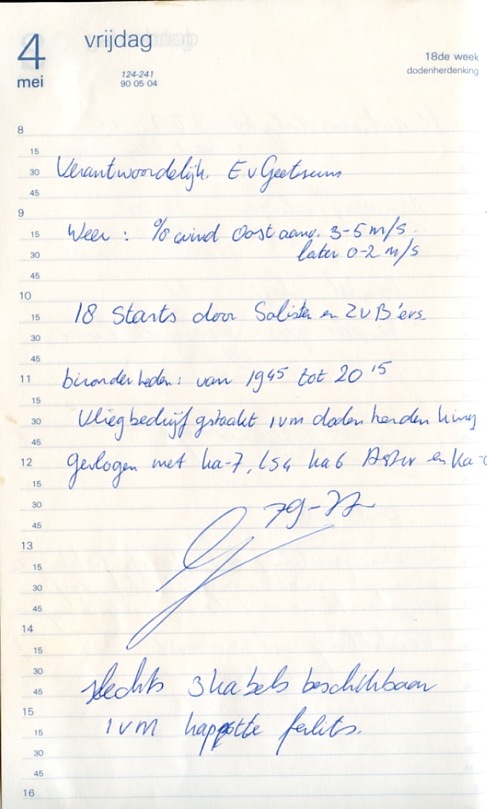 4 vrijdag
mei
124-241
90 05 04
18de week
dodenherdenking
8
15
30 Verantwoordelijk. E v Geetruns
45
9
15 Weer : % wind Oost aanv. 3-5 m/s.
30 later 0-2 m/s
45
10
15 18 Starts door Solisten en ZvB'ers.
30
45
11 bizonderheden: van 19 45 tot 20 15
15
30 Vliegbedrijf gstaakt ivm dodenherdenking
45
12 gevlogen met ka-7, ka6 en ka-
15
30
45
13
15
30
45
14
15
30
45 slechts 3 kabels beschikbaar
15
15 ivm kapotte
30
45
16